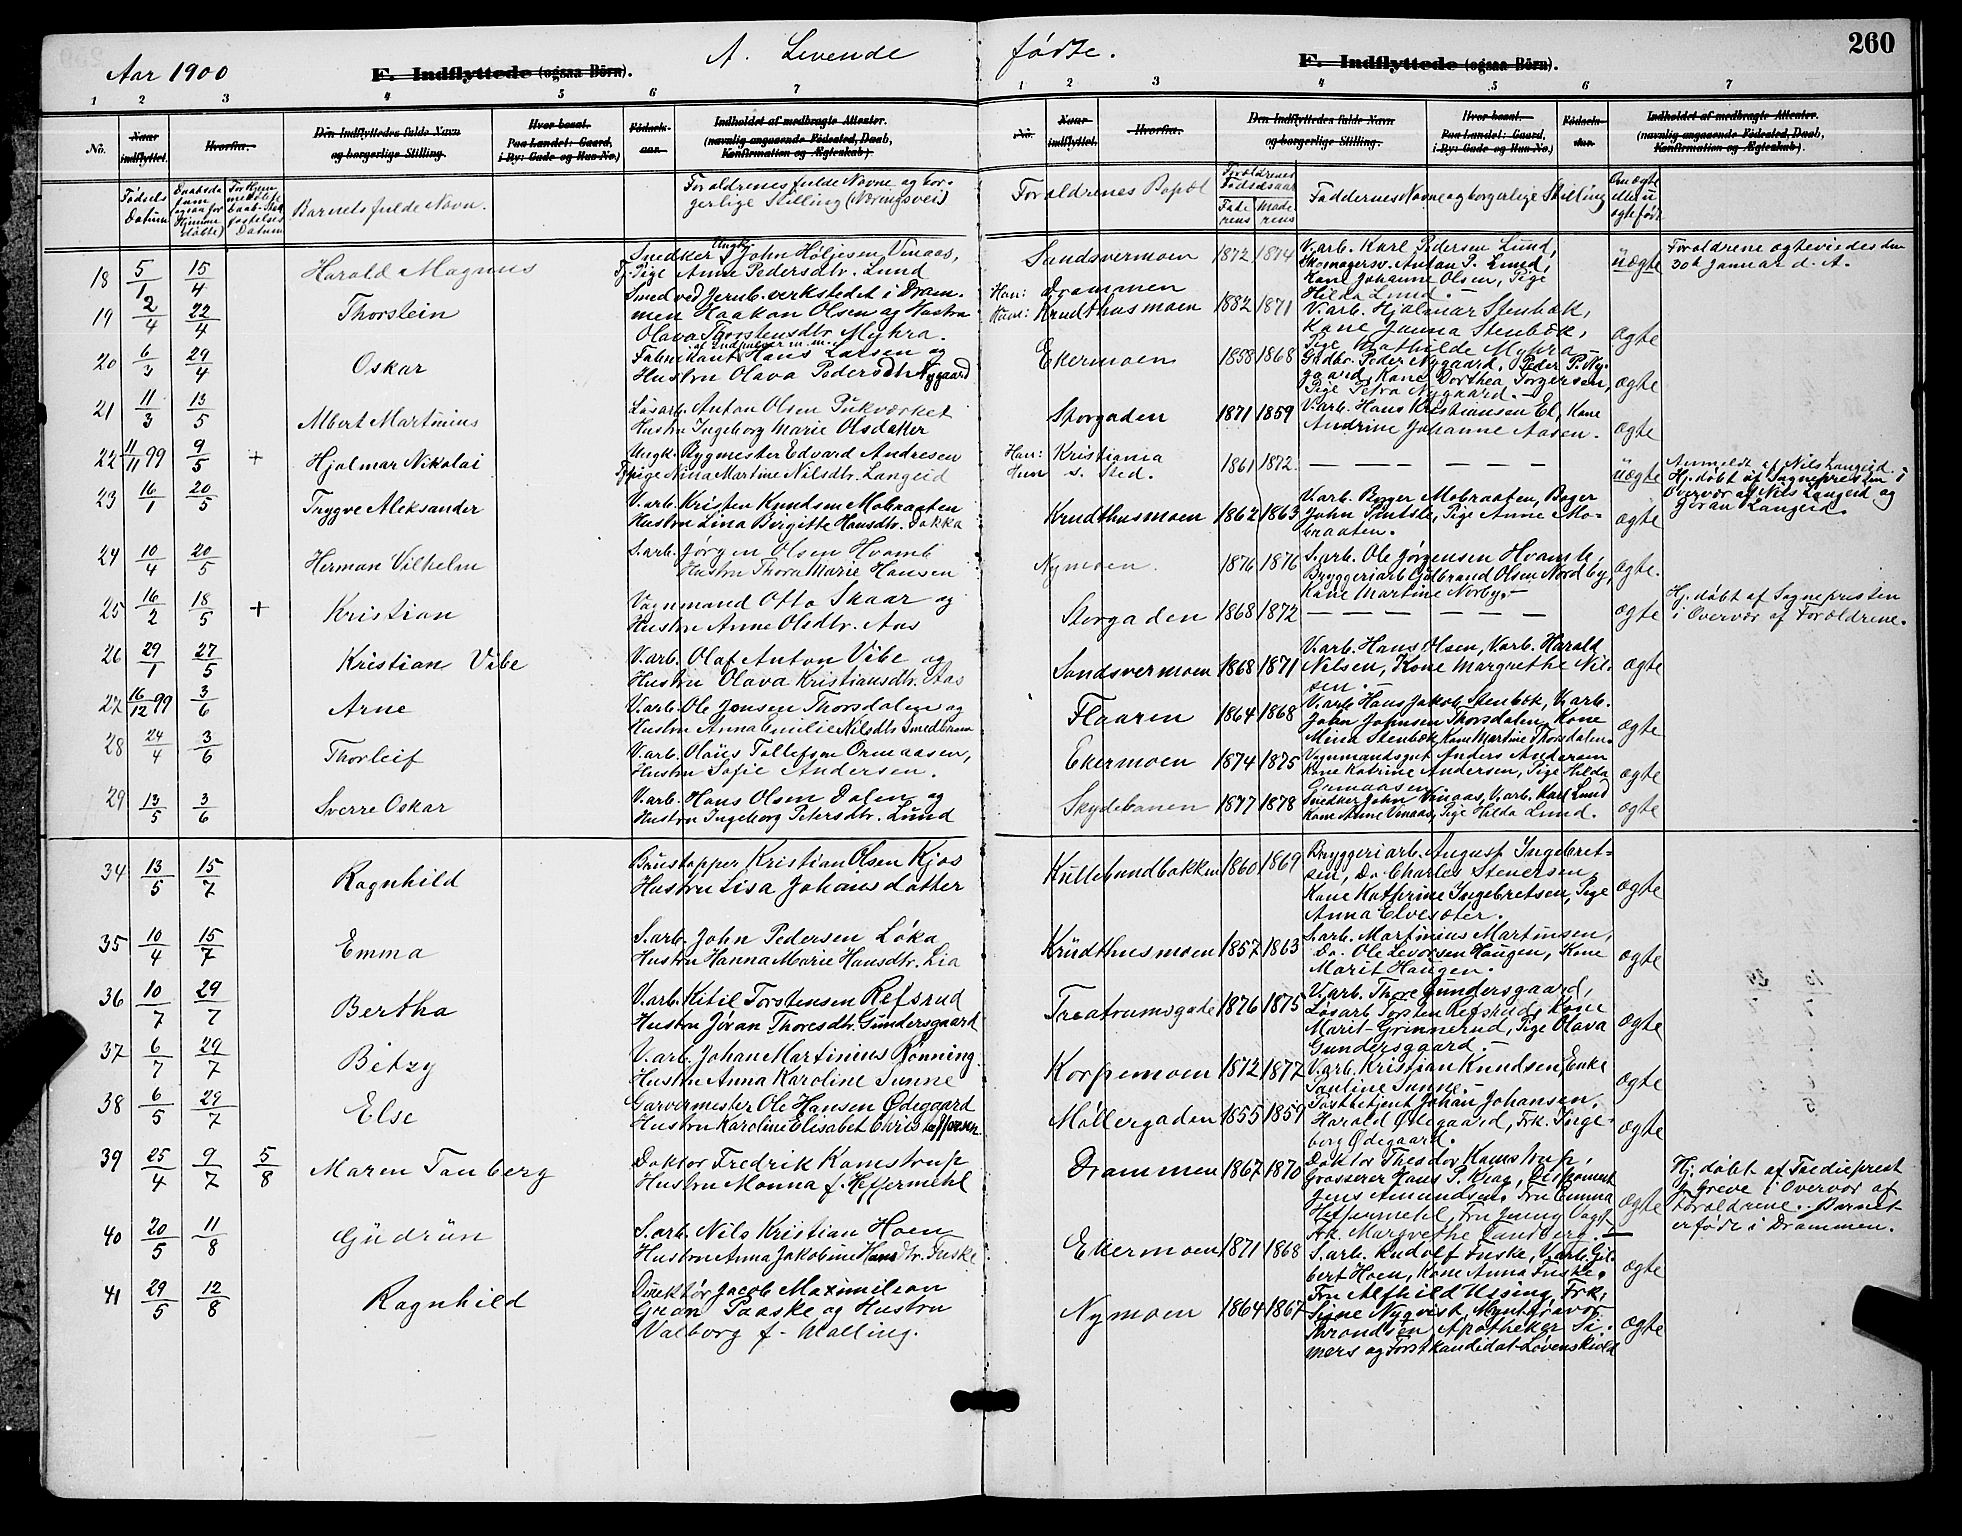 260
Aar 1900
E. Indflyttede (ogsaa Börn).
A. Levende
fødte.
E. Indflyttede (ogsaa Börn).
1 2 3 4 5 6 7
1 2 3 4 5 6 7
No. Naar indflyttet. Hvorfra. Den Indflyttedes fulde Navn og borgerlige Stilling. Hvor bosat. Paa Landet: Gaard, i By: Gade og Hus-No. Födselsaar. Indholdet af medbragte Attester. (navnlig angaaende Födested, Daab, Konfirmation og Ægteskab).
No. Naar indflyttet. Hvorfra. Den Indflyttedes fulde Navn og borgerlige Stilling. Hvor bosat. Paa Landet: Gaard, i By: Gade og Hus-No. Födselsaar. Indholdet af medbragte Attester. (navnlig angaaende Födested, Daab, Konfirmation og Ægteskab).
Fødsels Datum
Barnets fulde Navn.
Forældrenes fulde Navne og borgerlige Stilling (Næringsvei)
Forældrenes Bopæl
Forældrenes Fødselsaar
Faderens Moderens
Faddernes Navne og borgerlige Stilling
Om ægte eller uægte født
18 5/1 15/4 Harald Magnus
Snedker Ungk. John Høljesen Vinaas,
Tj. Pige Anne Pedersdtr. Lund
Sandsvermoen 1872 1874
V.arb. Karl Pedersen Lund,
Skomagersv. Anton P. Lund,
Kone Johanne Olsen, Pige
Hilda Lund. —
uægte
Forældrene ægteviedes den
30te Januar d. A.
19 2/4 22/4 Thorstein
Smed ved Jernb. verkstedet i Dram-
men Haakon Olsen og Hustru
Olava Thorstensdtr. Myhra.
Han: Drammen
Hun: Krudthusmoen 1882 1871
V.arb. Hjalmar Stenbæk,
Kone Janna Stenbæk,
Pige Mathilde Myhra —
ægte
20 6/3 29/4 Oskar
Fabrikant Hans Larsen og
Hustru Olava Pedersdtr Nygaard
Ekermoen 1858 1868
Gbdbr. Peder Nygaard, Peder P. Ny-
gaard, Kone Dorthea Torgersen,
Pige Petra Nygaard. —
ægte
21 11/3 13/5 Albert Martinius
Løsarb. Anton Olsen Pukværket
Hustru Ingeborg Marie Olsdaker
Storgaden 1871 1859
V.arb. Hans Kristiansen Ek, Kone
Andrine Johanne Aasen.
ægte
22 11/11 99 9/5 + Hjalmar Nikolai
Ungk. Bygmester Edvard Andresen
Tj. pige Nina Martine Nilsdtr. Langeid
Han: Kristiania
Hun s. Sted. 1861 1872 — — — —
uægte
Anmeldt af Nils Langeid.
Hj. døbt af Sognepresten i
Overvær af Nils Langeid og
Jøran Langeid.
23 16/1 20/5 Trygve Aleksander
V.arb. Kristen Knudsen Mobraaten
Hustru Lina Birgitte Hansdtr. Dokka
Krudthusmoen 1862 1863
V.arb. Birger Mobraaten, Birger
John, Pige Anne Mo-
braaten.
ægte
24 10/4 20/5 Herman Vilhelm
S.arb. Jørgen Olsen Hvamb
Hustru Thora Marie Hansen
Nymoen. 1876 1876
S.arb. Ole Jørgensen Hvamb,
Bryggeriarb. Gulbrand Olsen Nordby,
Kone Martine Norby. —
ægte.
25 16/2 18/5 + Kristian
Vognmand Otto Skaar og
Hustru Anne Olsdtr. Aas
Storgaden 1868 1872 — — — —
ægte
Hj. døbt af Sognepresten
i Overvær af Forældrene.
26 29/1 27/5 Kristian Vibe
V.arb. Olaf Anton Vibe og
Hustru Olava Kristiansdtr. Aas
Sandsvermoen 1868 1871
V.arb. Hans Olsen, V.arb. Harald
Nilsen, Kone Margrethe Nil-
sen. —
ægte
27 16/12 99 3/6 Arne
V.arb. Ole Jensen Thorsdalen og
Hustru Anna Emilie Nilsdtr Smedbrom
Flaaren 1864 1868
V.arb. Hans Jakob Stenbæk, V.arb.
John Johnsen Thorsdalen, Kone
Mina Stenbæk, Kone Martine Thorsdalen.
ægte
28 24/4 3/6 Thorleif
V.arb. Olaus Tollefsen Ormaasen,
Hustru Sofie Andersen.
Ekermoen 1874 1875
Vognmandsgut Anders Andersen
Kone Katrine Andersen, Pige Hilda
Ormaasen
ægte
29 13/5 3/6 Sverre Oskar
V.arb. Hans Olsen Dalen og
Hustru Ingeborg Petersdtr. Lund
Skydebanen 1877 1878
Snedker John Vinaas, V.arb. Karl Lund
Kone Anne Vinaas, Pige Hilda Lund.
ægte
34 13/5 15/7 Ragnhild
Brustapper Kristian Olsen Kjos
Hustru Lisa Johansdatter
Kullebundbakken 1860 1869
Bryggeriarb. August Ingebret-
sen, Do. Charles Stenersen,
Kone Kathrine Ingebretsen, Pige
Anna Elvesæter.
ægte
35 10/4 15/7 Emma
S.arb. John Pedersen Løka
Hustru Hanna Marie Hansdtr. Lia
Krudthusmoen 1857 1863
S.arb. Martinius Martinsen,
Do. Ole Levorsen Haugen, Kone
Marit Haugen.
ægte
36 10/7 29/7 Bertha
V.arb. Kitil Torstensen Refsrud
Hustru Jøran Thoresdtr. Gundersgaard
Treatrumsgade 1876 1875
V.arb. Thore Gundersgaard,
Løsarb. Torsten Refsrud, Kone
Marit Grinnerud, Pige Olava
Gundersgaard. —
ægte
37 6/7 29/7 Betzy
V.arb. Johan Martinius Rønning
Hustru Anna Karoline Sunne
Korpemoen 1872 1877
V.arb. Kristian Knudsen, Enke
Pauline Sunne. —
ægte
38 6/5 29/7 Else
Garvermester Ole Hansen Ødegaard
Hustru Karoline Elisabet Christoffersen
Møllergaden 1855 1859
Postbetjent Johan Johansen,
Harald Ødegaard, Frk. Inge-
borg Ødegaard.
ægte
39 25/4 9/7 5/8 Maren Tanberg
Doktor Fredrik Kamstrup
Hustru Monna f. Heffermehl
Drammen 1867 1870
Doktor Theodor Kamstrup,
Grosserer Hans P. Krag,
Jens Amundsen, Fru Emma
Heffermehl, Fru Jenny Vagt
Frk. Margrethe Tandberg. —
ægte
Hj. døbt af Tredieprest
J. Greve i Overvær af
Forældrene. Barnet
er født i Drammen.
40 20/5 11/8 Gudrun
S.arb. Nils Kristian Hoen
Hustru Anna Jakobine Hansdtr. Fuske
Ekermoen 1871 1868
S.arb. Rudolf Fuske, V.arb. Gil-
bert Hoen, Kone Anna Fuske.
ægte
41 29/5 12/8 Ragnhild
Direktør Jacob Maximilian
Gran Paaske og Hustru
Valborg f. Malling.
Nymoen 1864 1867
Fru Alfhild Using, Frk.
Signe Nyqvist, Myntgravør
Throndsen, Apotheker Si-
mers og Forstkandidat Løvenskiold
ægte